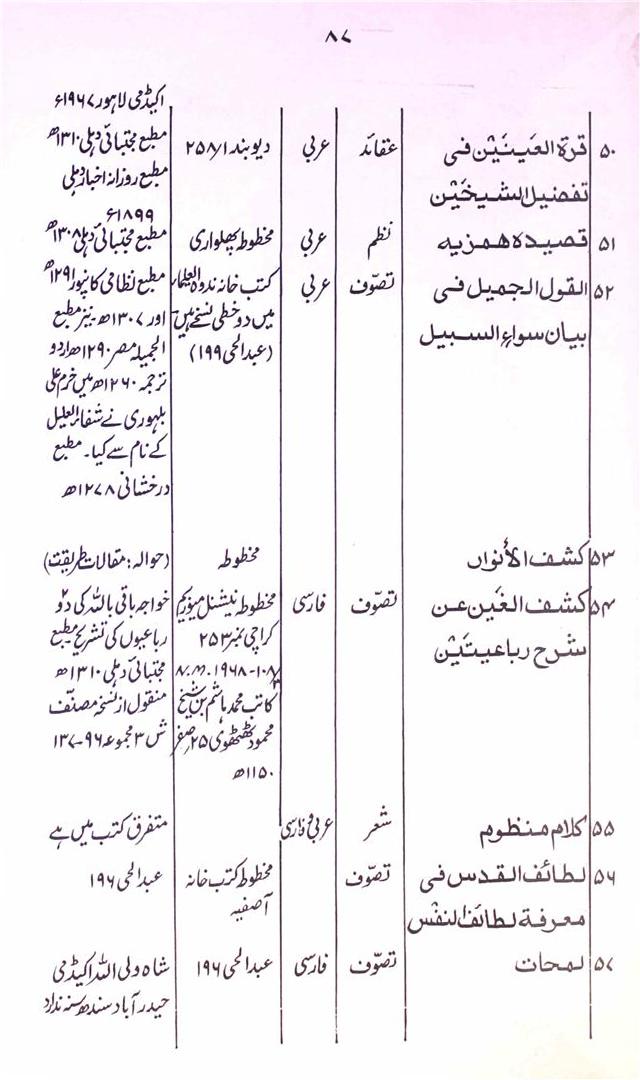 ۸۷
اکیڈمی لاہور ۱۹۶۷ء
۵۰ قرة العینین فی عقائد عربی دیوبند ۲۵۸/۱ مطبع مجتبائی دہلی ۱۳۱۰ھ
تفضیل الشیخین مطبع روزانہ اخبار دہلی
۱۸۹۹ء
۵۱ قصیدہ ہمزیہ نظم عربی مخطوطہ پھلواری مطبع مجتبائی دہلی ۱۳۰۸ھ
۵۲ القول الجمیل فی تصوّف عربی کتب خانہ ندوة العلماء مطبع نظامی کانپور ۱۲۹۱ھ
بیان سواء السبیل میں دو خطی نسخے ہیں۔ اور ۱۳۰۷ھ۔ نیز مطبع
(عبدالحی ۱۹۹) الجمیلہ مصر ۱۲۹۰ھ اردو
ترجمہ ۱۲۶۰ھ میں خرم علی
بلہوری نے شفاء العلیل
کے نام سے کیا۔ مطبع
درخشانی ۱۲۷۸ھ
۵۳ کشف الأنوار مخطوطہ (حوالہ: مقالات طریقت)
۵۴ کشف الغین عن تصوّف فارسی مخطوطہ نیشنل میوزیم خواجہ باقی باللہ کی دو ۲
شرح رباعیتین کراچی نمبر ۲۵۳ رباعیوں کی تشریح مطبع
N.M. ۱۹۶۸-۱۰۸/۳ مجتبائی دہلی ۱۳۱۰ھ
کاتب محمد ہاشم بن شیخ منقول از نسخہ مصنّف
محمود ٹھٹھوی ۲۵ صفر ش ۳ مجموعہ ۹۶-۱۳۷
۱۱۵۰ھ
۵۵ کلام منظوم شعر عربی و فارسی متفرق کتب میں ہے
۵۶ لطائف القدس فی تصوّف مخطوطہ کتب خانہ عبدالحی ۱۹۶
معرفة لطائف النفس آصفیہ
۵۷ لمحات تصوّف فارسی عبدالحی ۱۹۶ شاہ ولی اللہ اکیڈمی
حیدرآباد سندھ سنہ ندارد